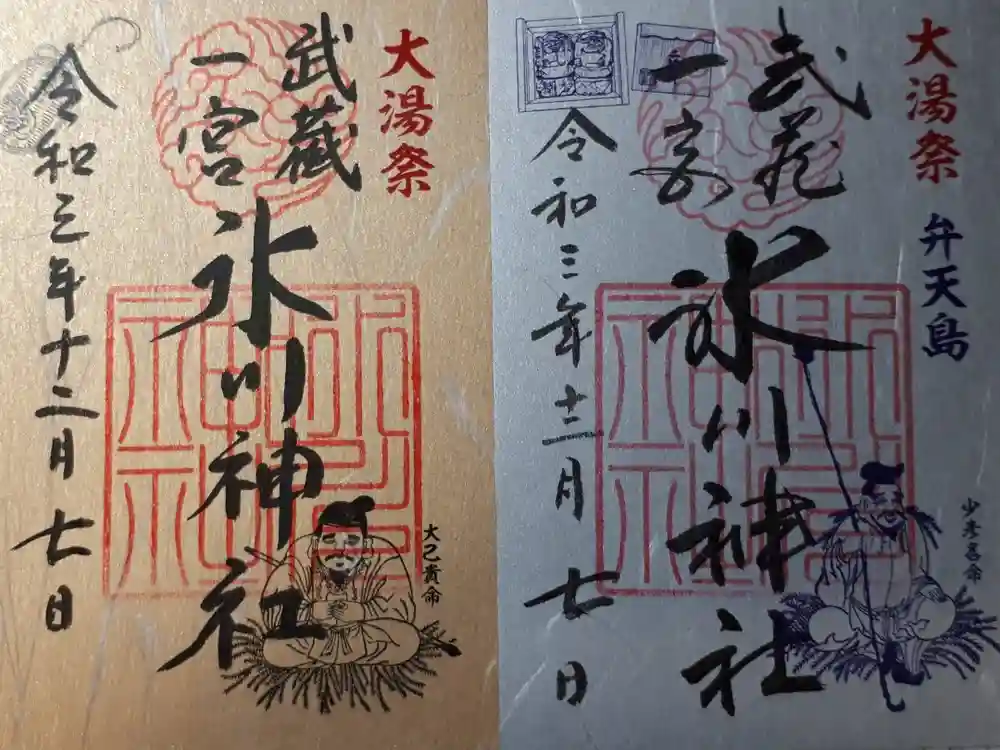 大湯祭
武蔵
一宮
氷川神社
大己貴命
令和三年十二月七日
大湯祭
弁天島
武蔵
一宮
氷川神社
少彦名命
令和三年十二月七日